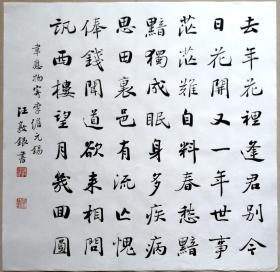 去年花裡逢君別今
日花開又一年世事
茫茫難自料春愁黯
黯獨成眠身多疾病
思田裏邑有流亡愧
俸錢聞道欲來相問
訊西樓望月幾囬圓
韋應物寄李儋元錫
汪敦銀書